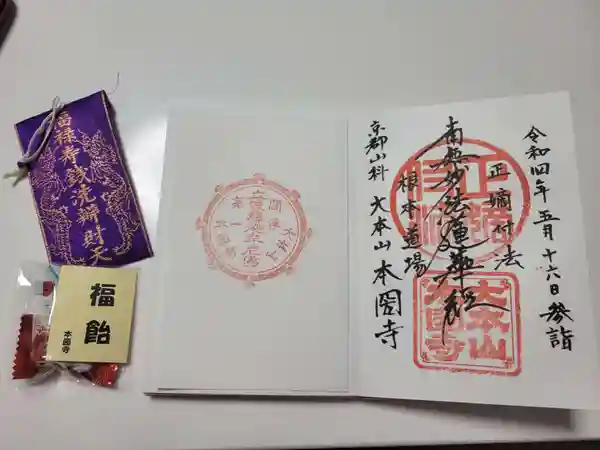 福禄寿銭洗辯財天
福飴
本圀寺
令和四年五月十六日参詣
正嫡付法
南無妙法蓮華経
根本道場
京都山科 大本山 本圀寺
大本山
本圀寺